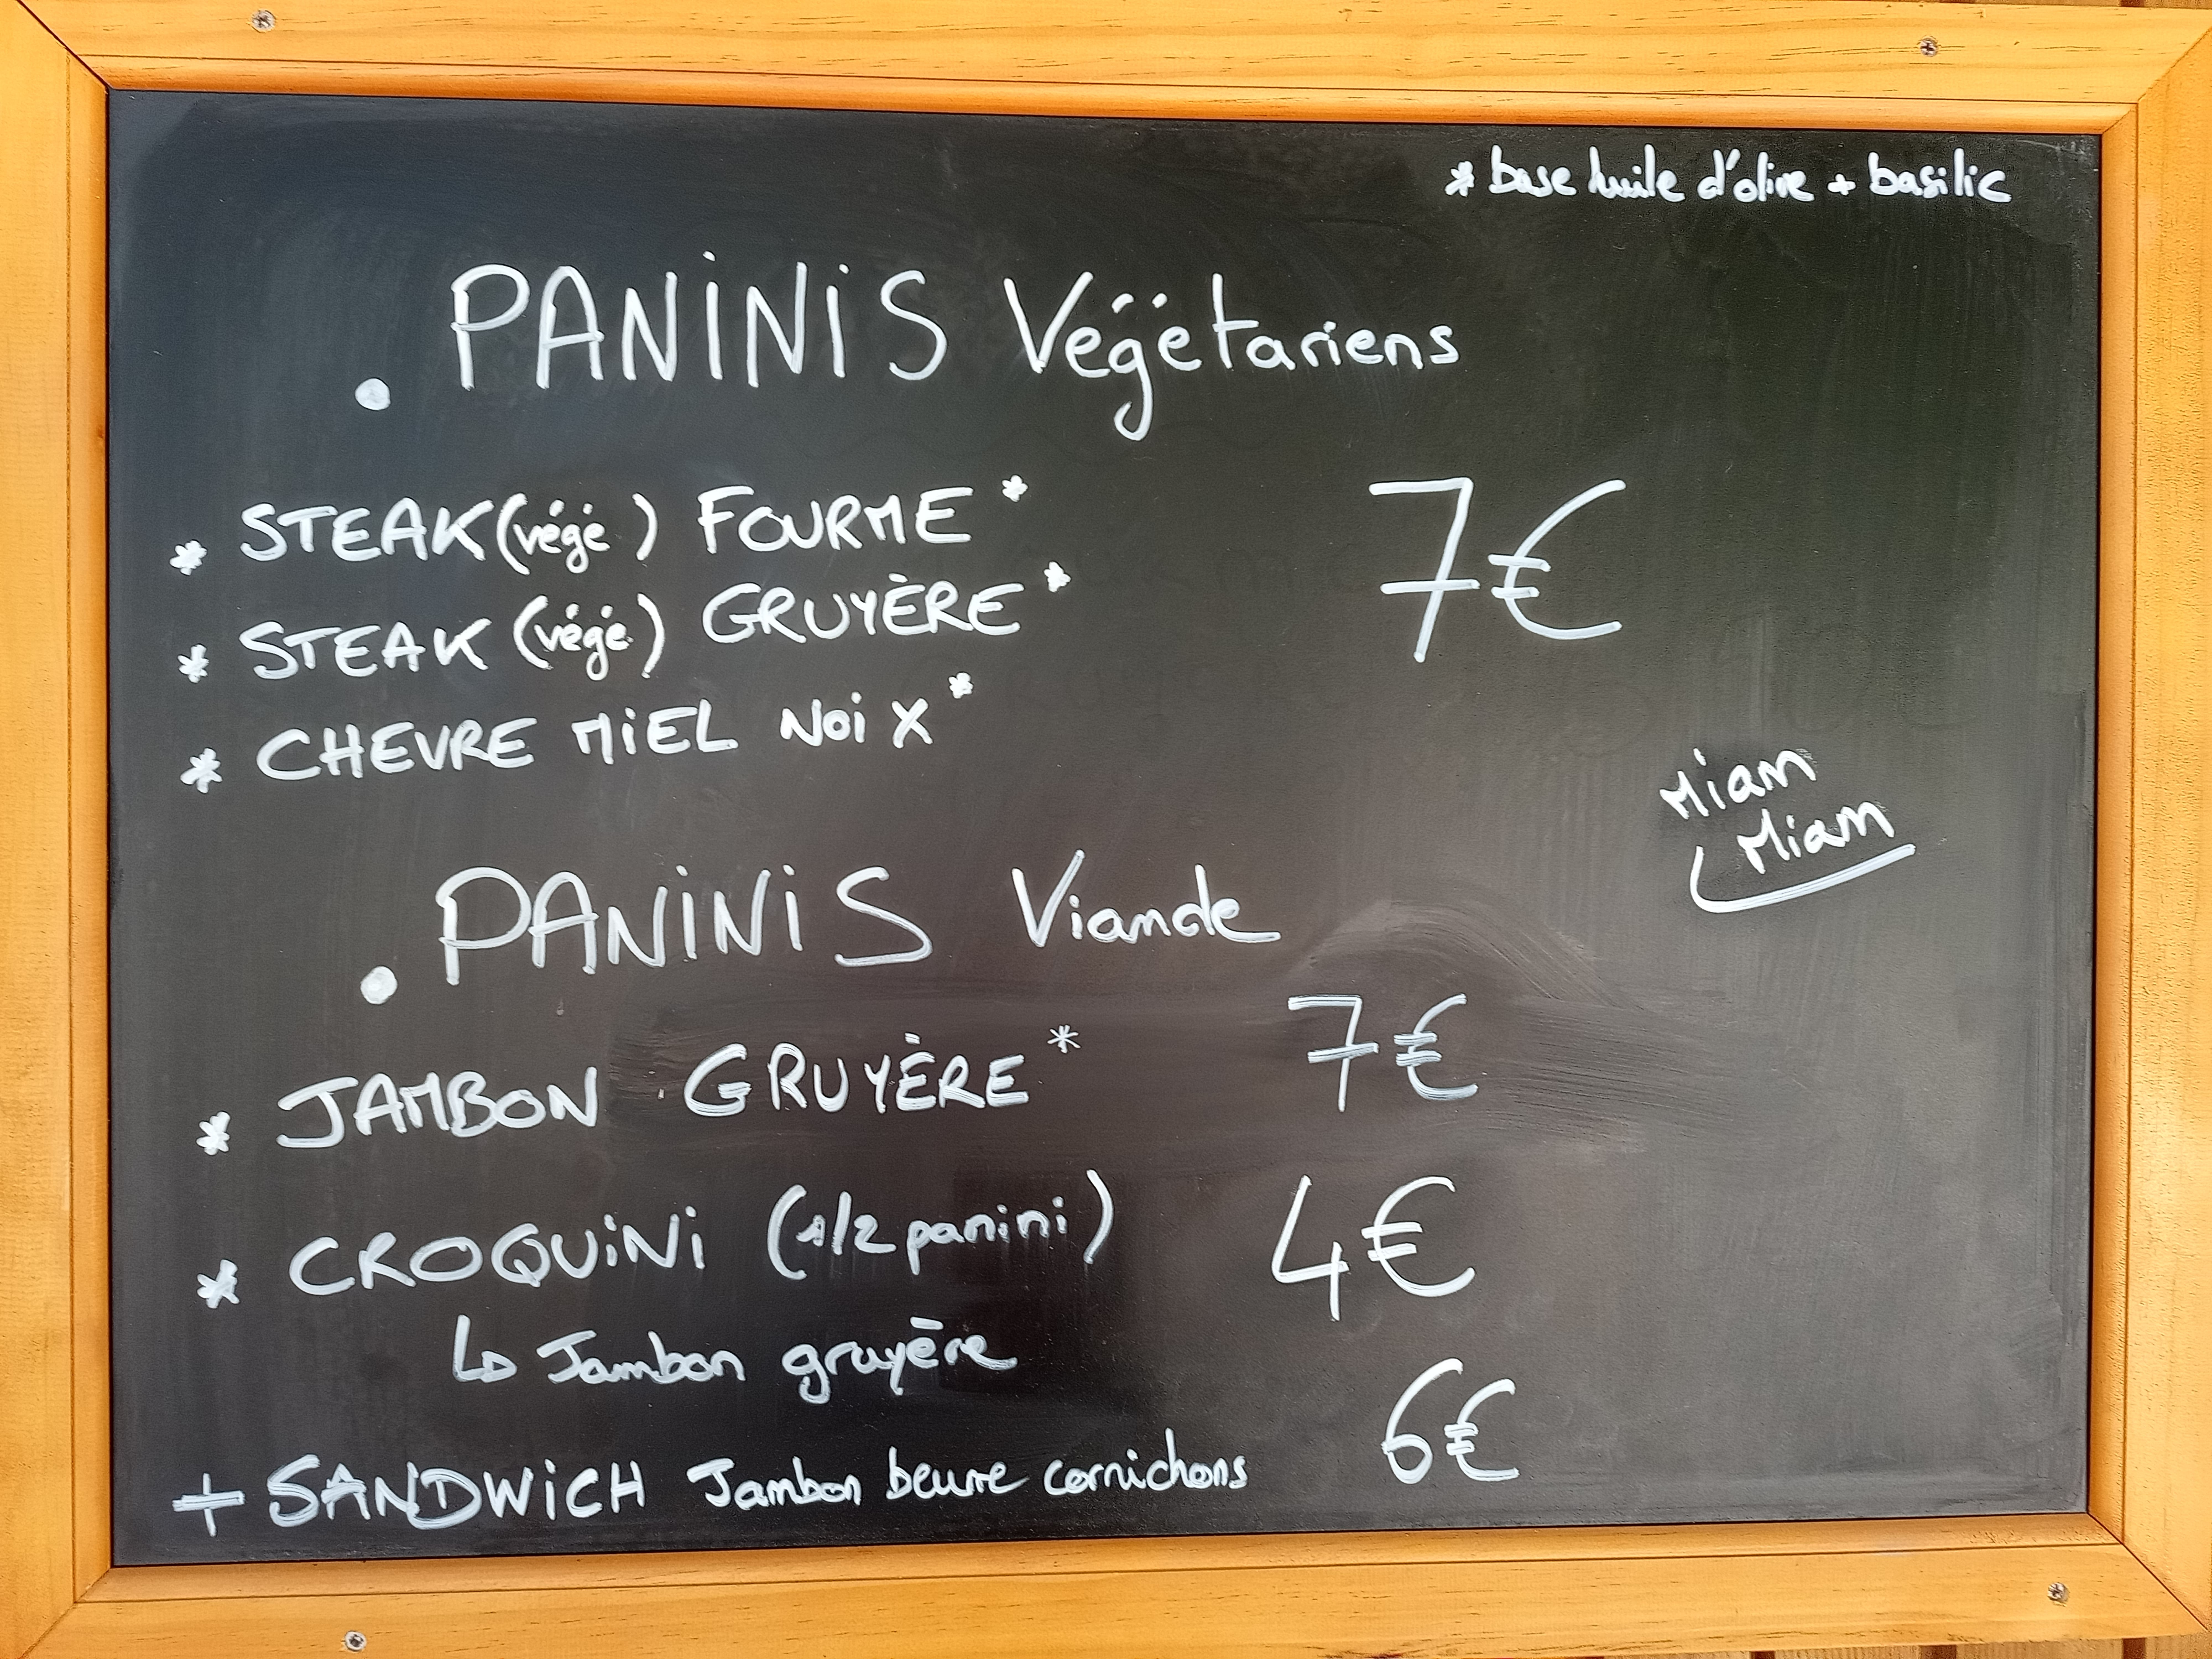 * base huile d'olive + basilic
. PANiNiS Végétariens
* STEAK (végé) FOURME*
7€
* STEAK (végé) GRUYÈRE*
* CHEVRE MiEL NoiX*
Miam
Miam
. PANiNiS Viande
* JAMBON GRUYÈRE* 7€
* CROQUiNi (1/2 panini) 4€
↳ Jambon gruyère
+ SANDWiCH Jambon beurre cornichons 6€